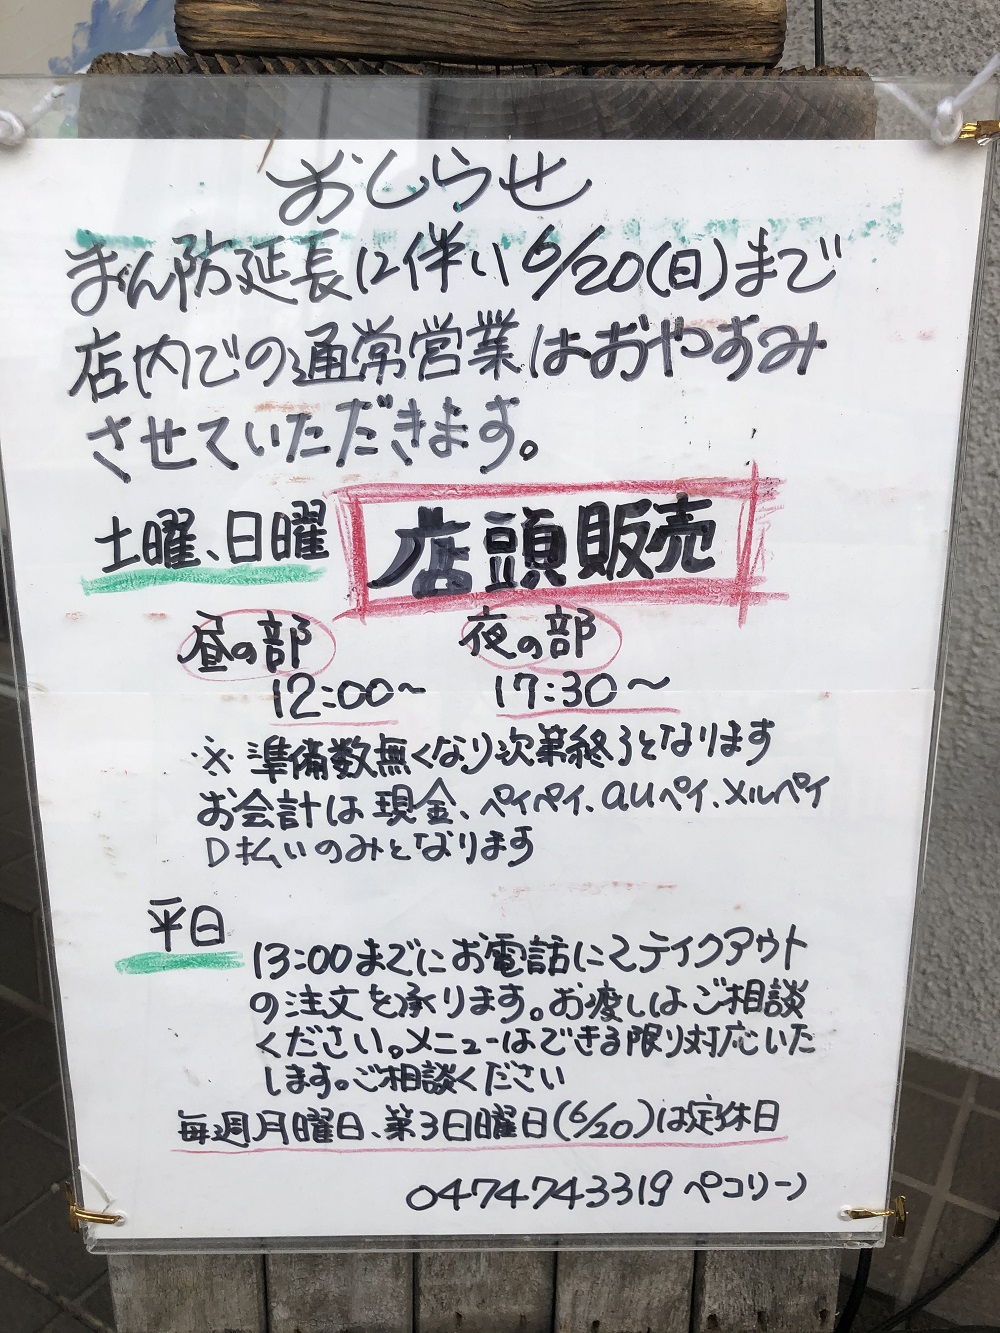 おしらせ
まん防延長に伴い6/20(日)まで
店内での通常営業はおやすみ
させていただきます。
土曜、日曜 店頭販売
昼の部 夜の部
12:00～ 17:30～
※準備数無くなり次第終了となります
お会計は現金、ペイペイ、auペイ、メルペイ
D払いのみとなります
平日
13:00までにお電話にてテイクアウト
の注文を承ります。お渡しはご相談
ください。メニューはできる限り対応いた
します。ご相談ください
毎週月曜日、第3日曜日(6/20)は定休日
0474743319 ペコリーノ